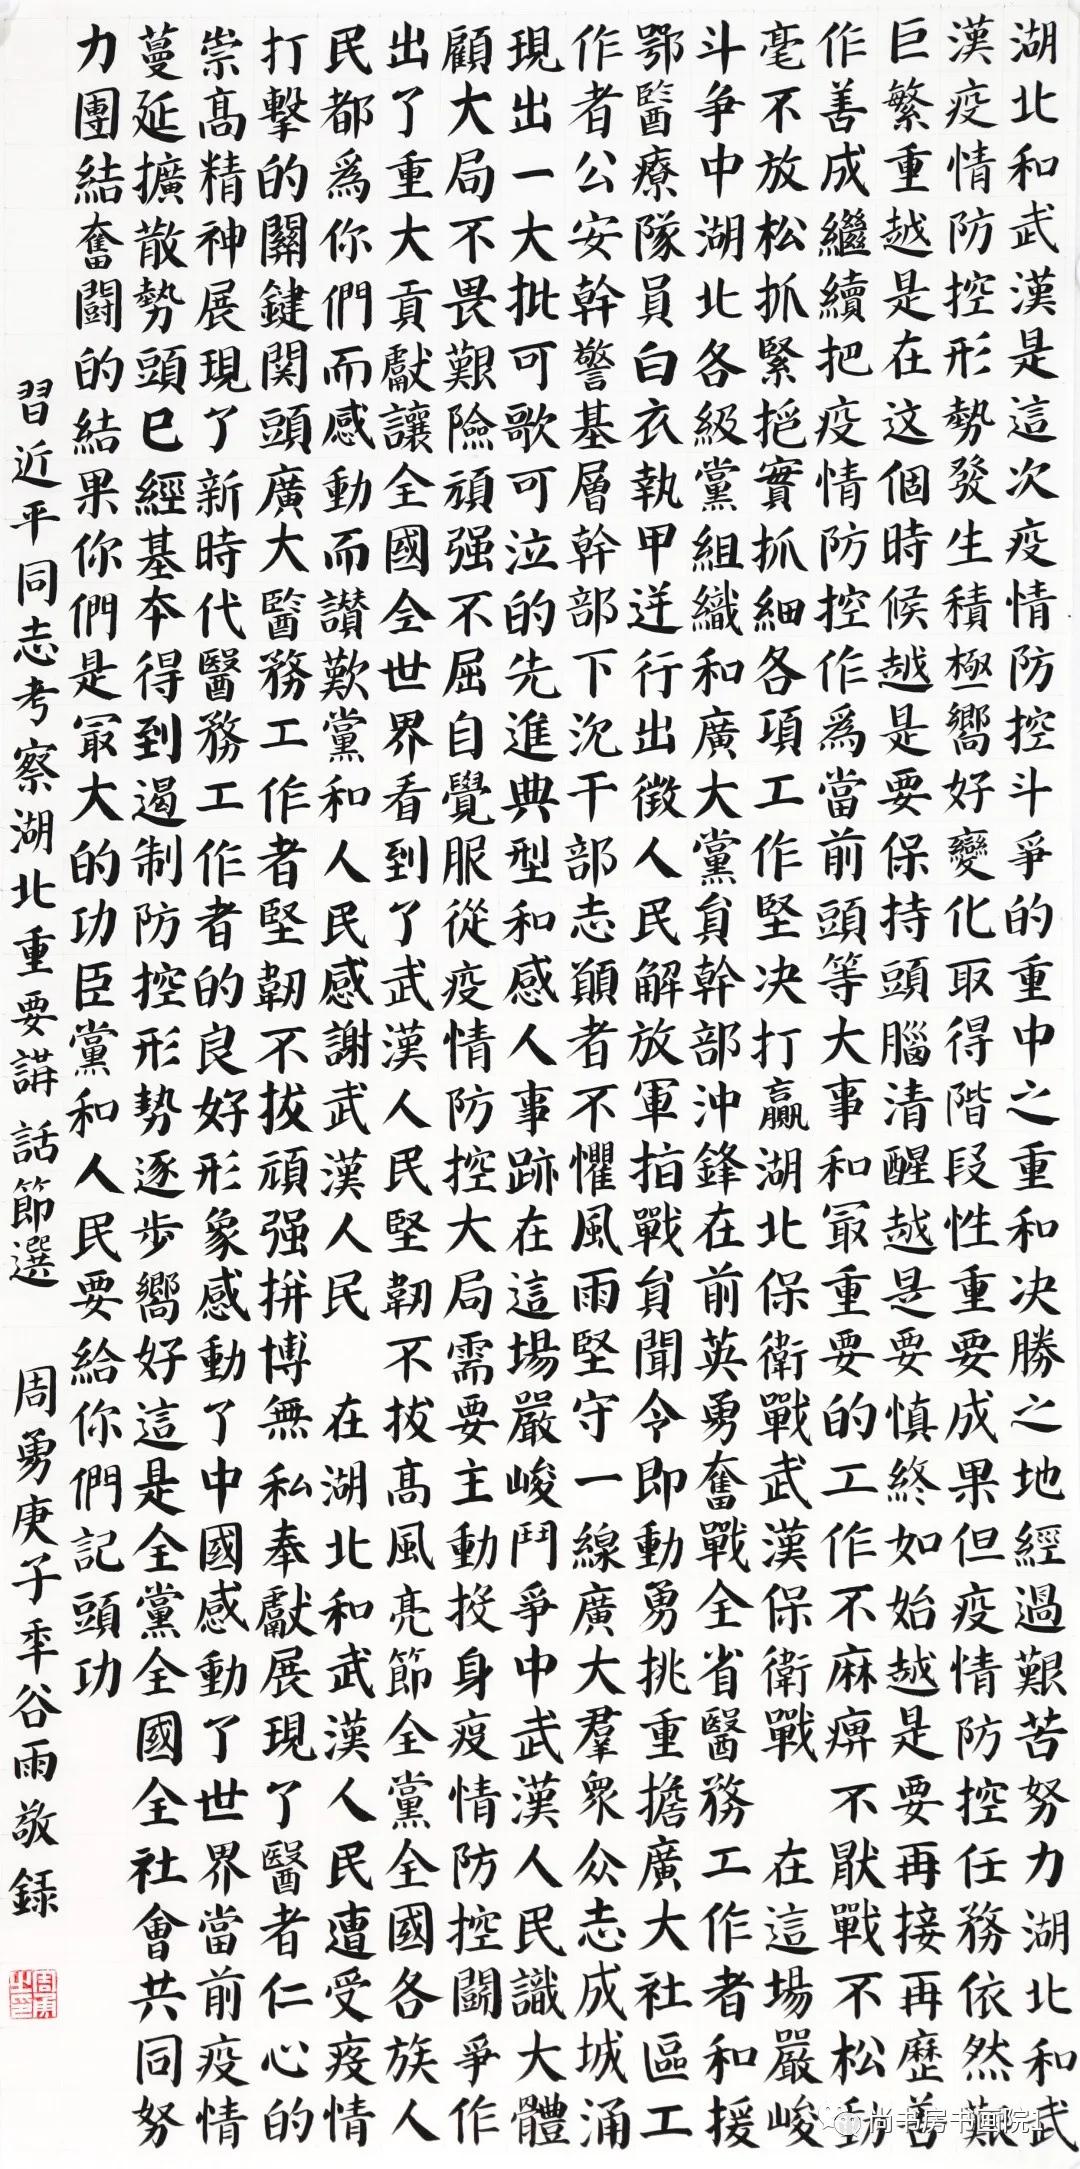 湖北和武漢是這次疫情防控斗爭的重中之重和决勝之地經過艱苦努力湖北和武
漢疫情防控形勢發生積極嚮好變化取得階段性重要成果但疫情防控任務依然艱
巨繁重越是在这個時候越是要保持頭腦清醒越是要慎終如始越是要再接再歷善
作善成繼續把疫情防控作爲當前頭等大事和冣重要的工作不麻痹不厭戰不松勁
毫不放松抓緊挹實抓細各項工作堅决打贏湖北保衛戰武漢保衛戰 在這場嚴峻
斗争中湖北各級黨組織和廣大黨員幹部沖鋒在前英勇奮戰全省醫務工作者和援
鄂醫療隊員白衣執甲逆行出徵人民解放軍指戰員聞令即動勇挑重擔廣大社區工
作者公安幹警基層幹部下沉干部志顚者不懼風雨堅守一線廣大羣衆众志成城涌
現出一大批可歌可泣的先進典型和感人事跡在這場嚴峻鬥爭中武漢人民識大體
顧大局不畏艱險頑强不屈自覺服從疫情防控大局需要主動投身疫情防控鬭爭作
出了重大貢獻讓全國全世界看到了武漢人民堅韌不拔髙風亮節全黨全國各族人
民都爲你們而感動而讃歎黨和人民感謝武漢人民 在湖北和武漢人民遭受疫情
打擊的關鍵関頭廣大醫務工作者堅韌不拔頑强拼博無私奉獻展現了醫者仁心的
崇髙精神展現了新時代醫務工作者的良好形象感動了中國感動了世界當前疫情
蔓延擴散勢頭已經基本得到遏制防控形勢逐步嚮好這是全黨全國全社會共同努
力團結奮鬭的結果你們是冣大的功臣黨和人民要給你們記頭功
習近平同志考察湖北重要講話節選 周勇庚子年谷雨敬録
周勇之印
尚书房书画院1